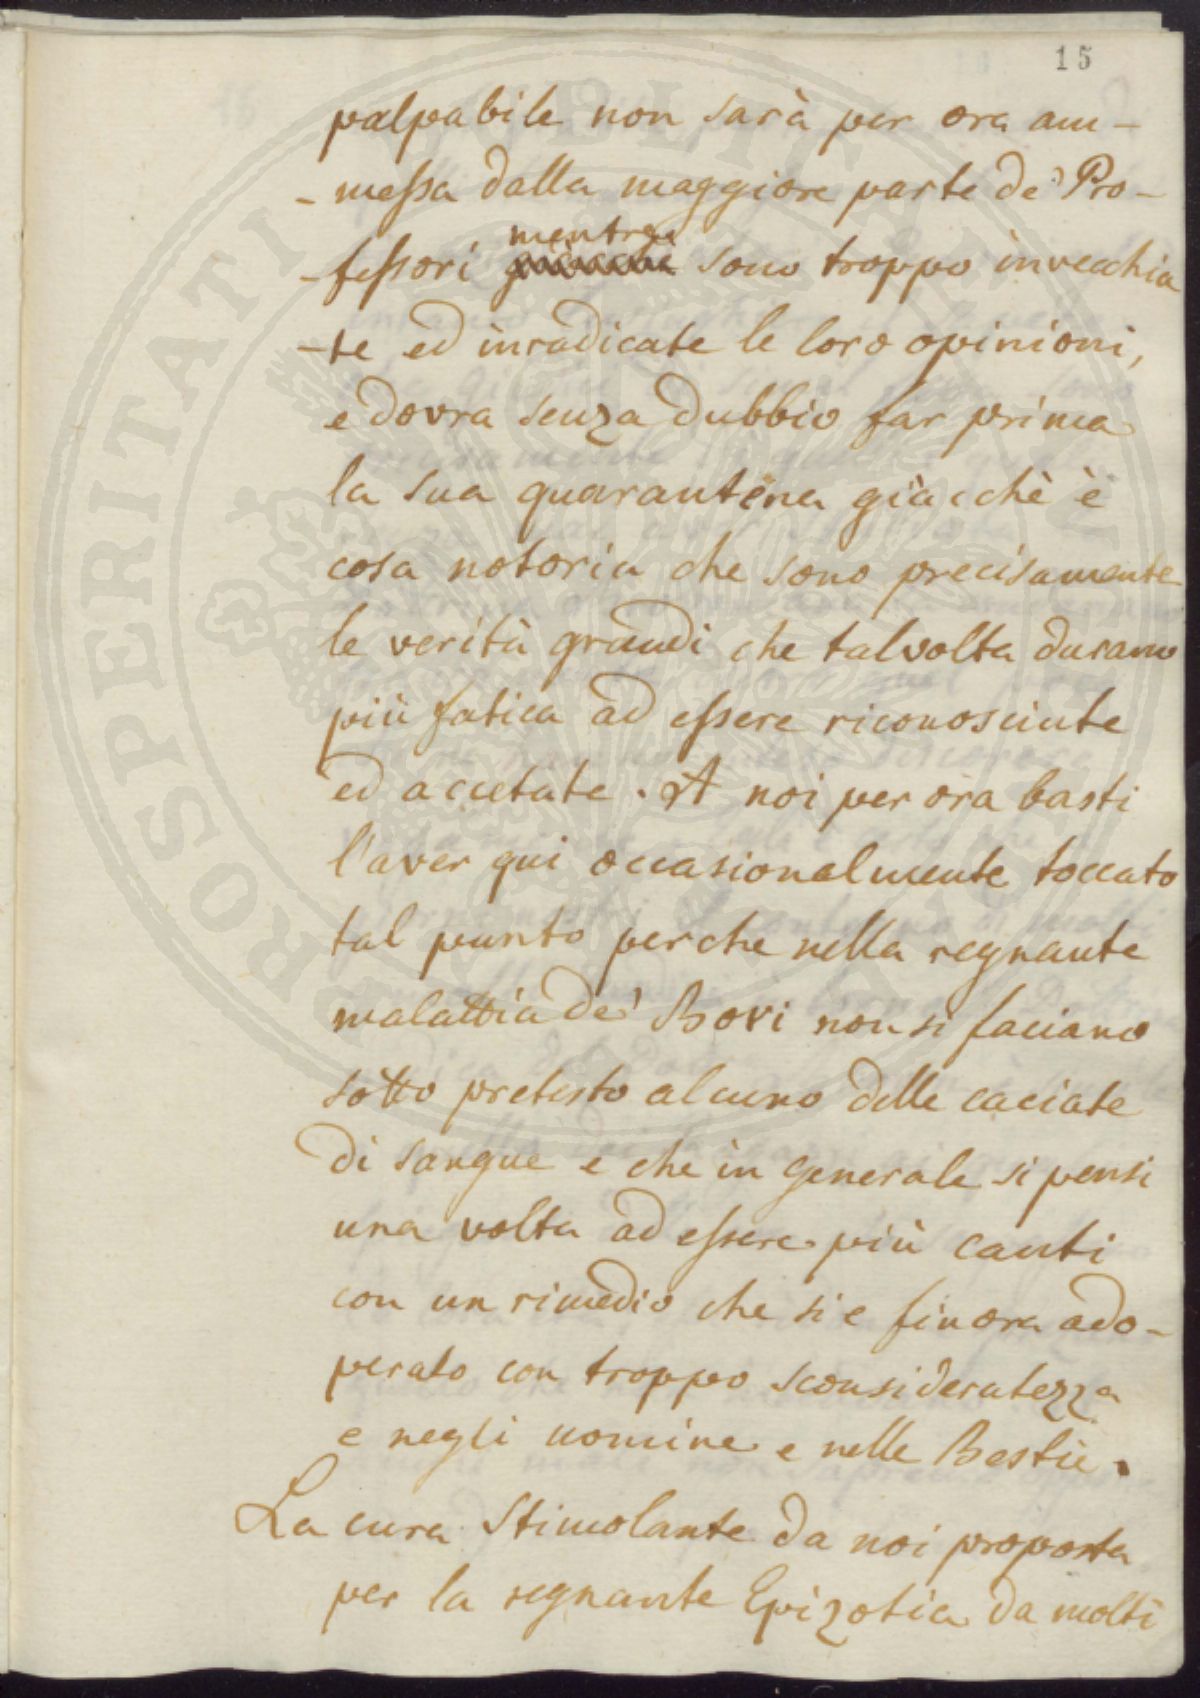 15
palpabile non sarà per ora am-
-messa dalla maggiore parte de' Pro-
mentre
-fessori giacche sono troppo invecchia
-te ed inradicate le loro opinioni,
e dovra senza dubbio far prima
la sua quarantena giacchè è
cosa notoria che sono precisamente
le verità grandi che talvolta durano
più fatica ad essere riconosciute
ed accetate. A noi per ora basti
l'aver qui occasionalmente toccato
tal punto perche nella regnante
malattia de' Bovi non si faciano
sotto pretesto alcuno delle caciate
di sangue e che in generale si pensi
una volta ad essere più cauti
con un rimedio che si e finora ado-
perato con troppo sconsideratezza
e negli uomine e nelle Bestie.
La cura Stimolante da noi proposta
per la regnante Epizotia da molti
PROSPERITATI PUBLICAE